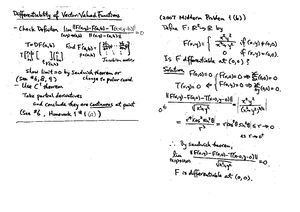 Differentiability of Vector-Valued Functions
- Check Definition lim ||F(x,y)-F(a,b)-T(x-a,y-b)|| / ||(x,y)-(a,b)|| = 0
(x,y)→(a,b)
T = DF(a,b)
Find F'(a,b) =
Jacobian matrix
Show limit = 0 by Sandwich theorem or
change to polar coord.
(See #6, 8, 9)
- Use C¹ theorem
Take partial derivatives
and conclude they are continuous at point
(See #6, Homework 1 #1(a))
(2007 Midterm Problem 1(b))
Define F: ℝ²→ℝ by
F(x,y) = if (x,y)≠(0,0)
0 if (x,y)=(0,0)
Is F differentiable at (0,0)?
Solution
F(x,0) = 0
F(0,y) = 0
T(x,y) = 0
||F(x,y) - F(0,0) - T(x-0,y-0)||
≤ r → 0
as r→0
∴ By Sandwich theorem,
lim ||F(x,y)-F(0,0)-T(x-0,y-0)|| = 0
F is differentiable at (0,0).